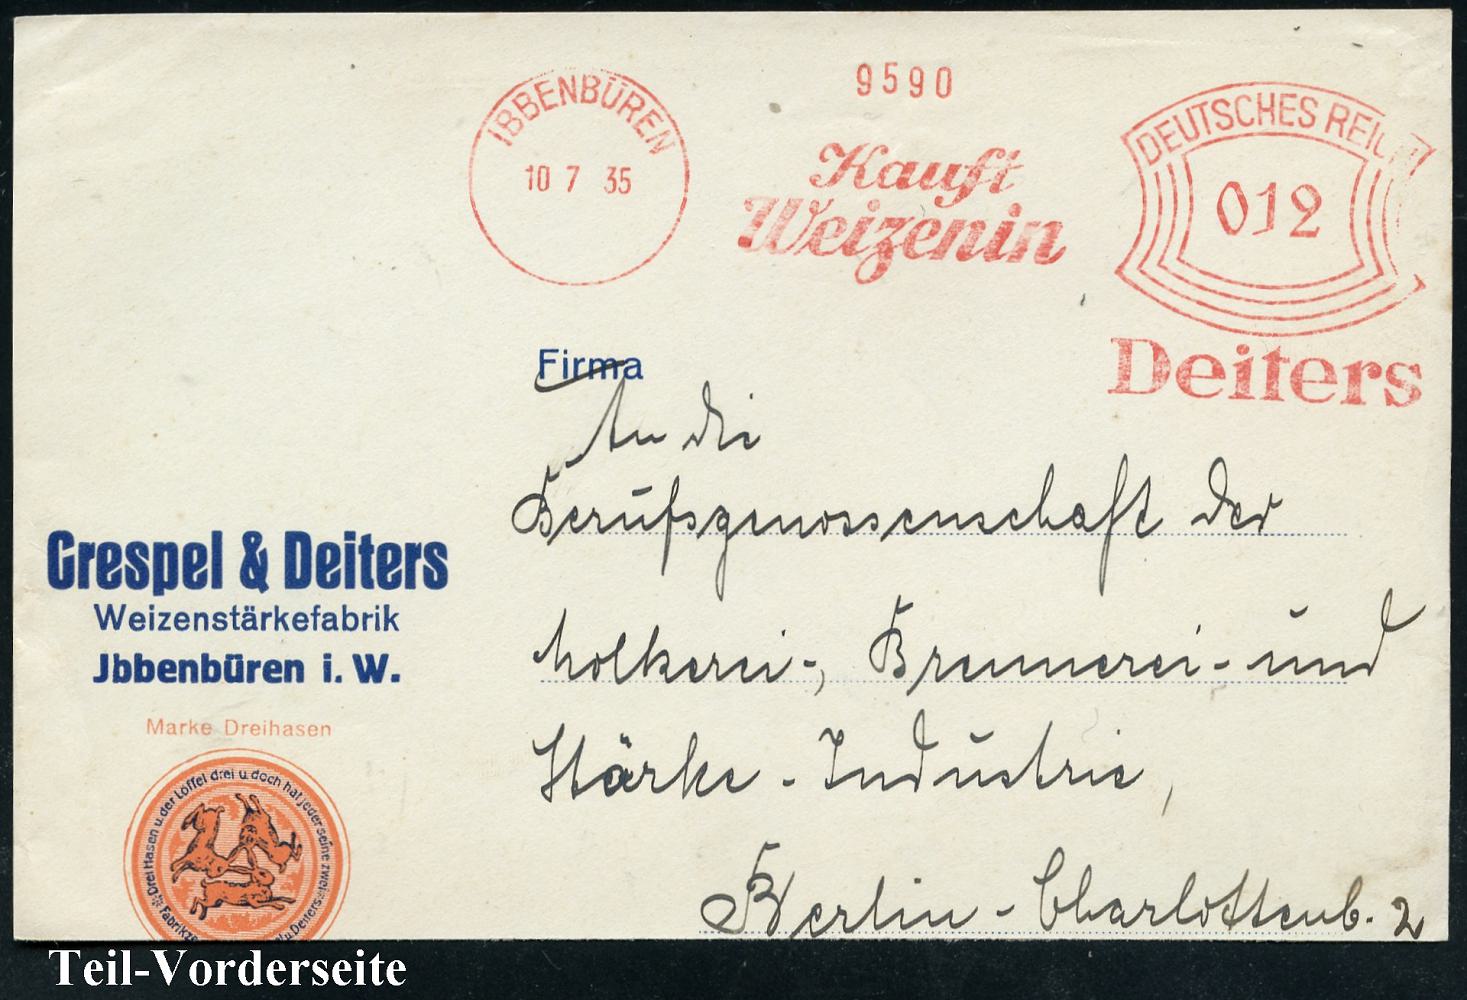 9590
IBBENBÜREN
10 7 35
Kauft
Weizenin
DEUTSCHES REICH
012
Deiters
Firma
An die
Berufsgenossenschaft der
Molkerei-, Brennerei- und
Stärke-Industrie,
Berlin-Charlottenb. 2
Crespel & Deiters
Weizenstärkefabrik
Jbbenbüren i. W.
Marke Dreihasen
Drei Hasen u. der Löffel drei u. doch hat jeder seine zwei
Teil-Vorderseite